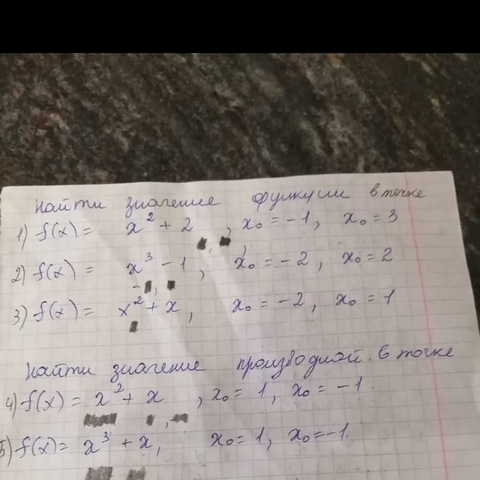 Найти значение функции в точке
1) f(x) = x² + 2, x₀ = -1, x₀ = 3
2) f(x) = x³ - 1, x₀ = -2, x₀ = 2
3) f(x) = x² + x, x₀ = -2, x₀ = 1
Найти значение производной в точке
4) f(x) = x² + x, x₀ = 1, x₀ = -1.
5) f(x) = x³ + x, x₀ = 1, x₀ = -1.